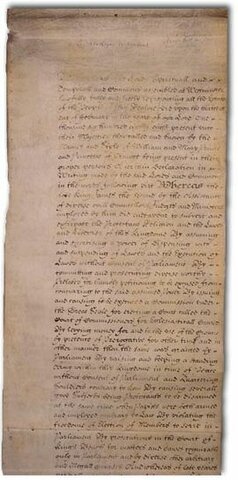 Lords Spirituall and
Temporall and Commons assembled at Westminster
lawfully fully and freely representing all the Estates
of the People of this Realme did upon the thirteenth
day of February in the yeare of our Lord One
thousand six hundred eighty eight present unto
their Majesties then called and known by the
Names and Stile of William and Mary Prince
and Princesse of Orange being present in their
proper Persons a certaine Declaration in
Writing made by the said Lords and Commons
in the words following viz Whereas the
late King James the Second by the assistance
of diverse evill Counsellors Judges and Ministers
imployed by him did endeavour to subvert and
extirpate the Protestant Religion and the Lawes
and Liberties of this Kingdome By assuming
and exercising a power of dispensing with
and suspending of Lawes and the Execution of
Lawes without consent of Parliament By
committing and prosecuting diverse worthy
Prelates for humbly petitioning to be excused from
concurring to the said assumed power By issuing
and causing to be executed a Commission under
the Great Seale for erecting a Court called the
Court of Commissioners for Ecclesiasticall Causes
By levying money for and to the use of the Crowne
by pretence of Prerogative for other time and in
other manner then the same was granted by
Parliament By raising and keeping a standing
Army within this Kingdome in time of Peace
without consent of Parliament and Quartering
Souldiers contrary to Law By causing severall
good Subjects being Protestants to be disarmed
at the same time when Papists were both armed
and employed contrary to Law By violating the
freedome of Election of Members to serve in
Parliament By prosecutions in the Court of
Kings Bench for matters and causes cognizable
only in Parliament and by diverse other arbitrary
and illegal courses And whereas of late yeares